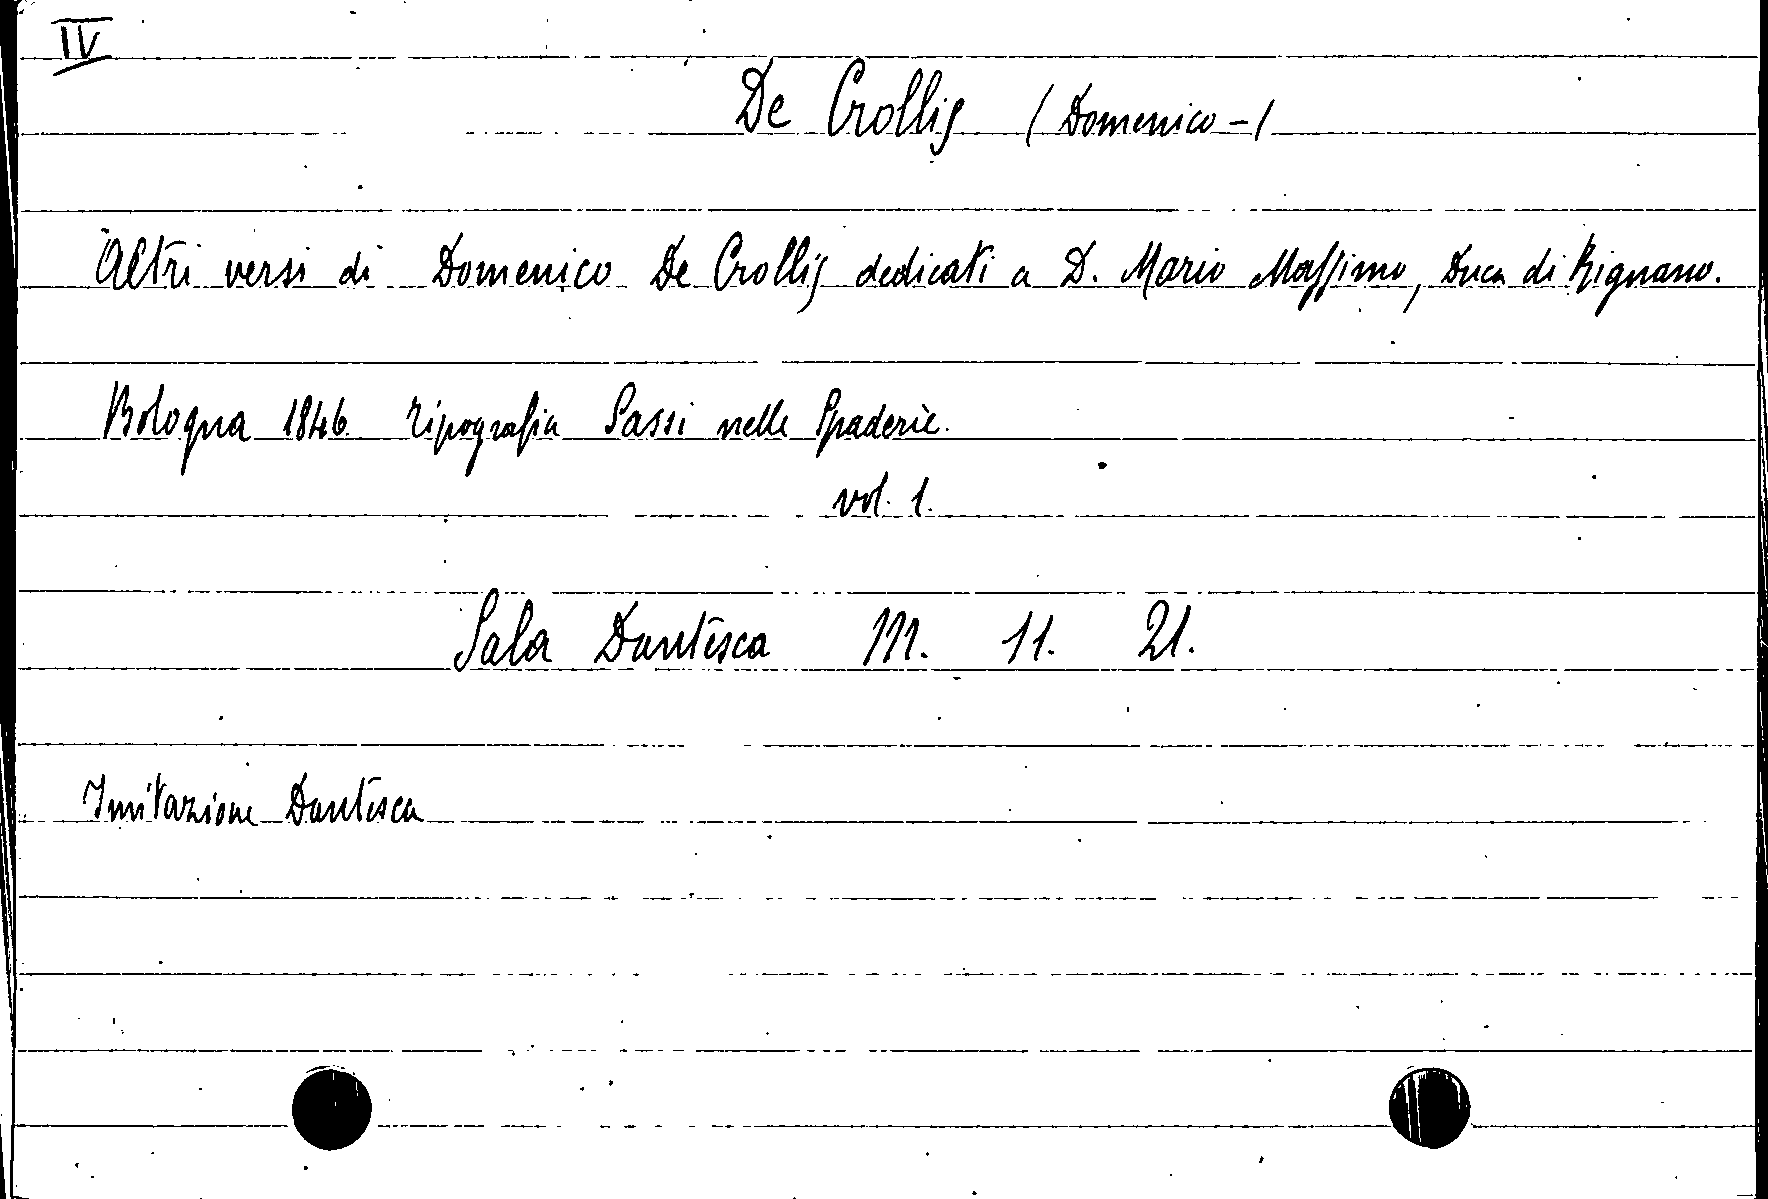 IV
De Crollis (Domenico-)
Altri versi di Domenico De Crollis dedicati a D. Mario Massimo, Duca di Rignano.
Bologna 1846 tipografia Sassi nelle Spaderie.
vol. 1.
Sala Dantesca III. 11. 21.
Imitazione Dantesca